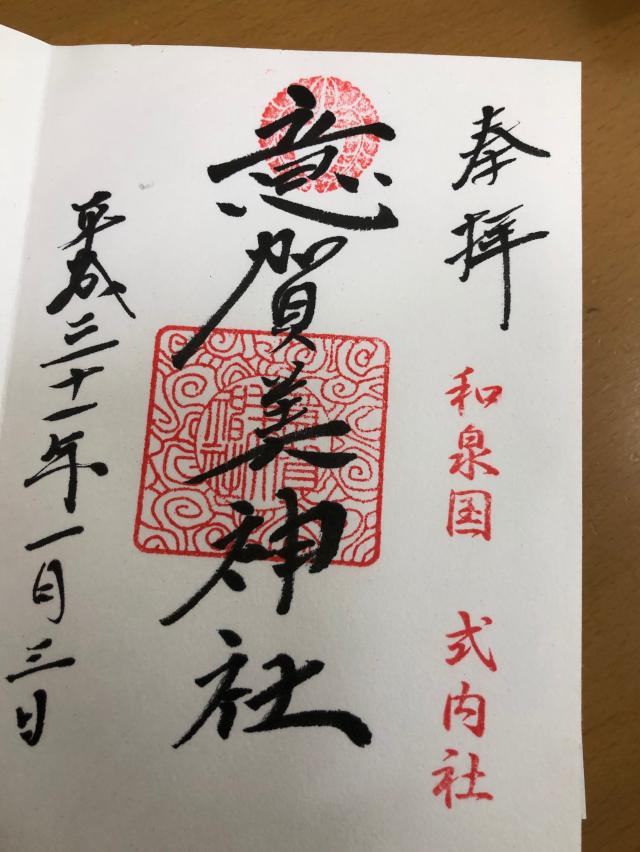 奉拝
和泉国 式内社
意賀美神社
平成三十一年一月三日